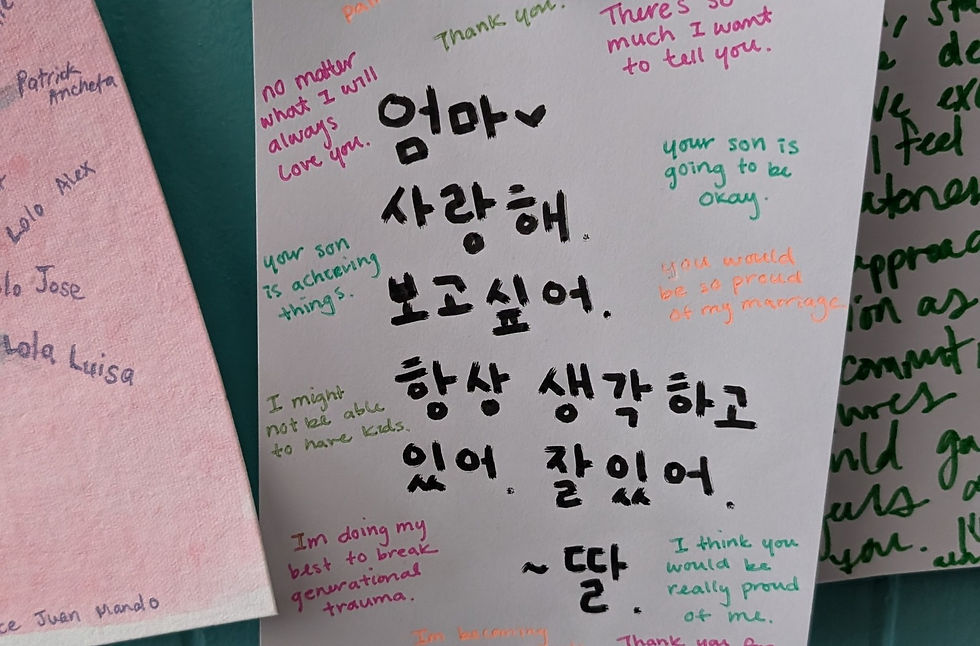 Patrick
Ancheta
Lolo Alex
Jose
Lola Luisa
Juan Mando
Thank you.
There's so
much I want
to tell you.
no matter
what I will
always
love you.
엄마♥
사랑해.
보고싶어.
항상 생각하고
있어. 잘있어.
~ 딸.
your son is
going to be
okay.
your son
is achieving
things.
you would
be so proud
of my marriage
I might
not be able
to have kids.
Im doing my
best to break
generational
trauma.
I think you
would be
really proud
of me.
Im becoming
Thank you
I feel
ion as
you.